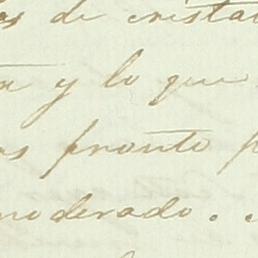 de crista
y lo que
pronto
moderado.